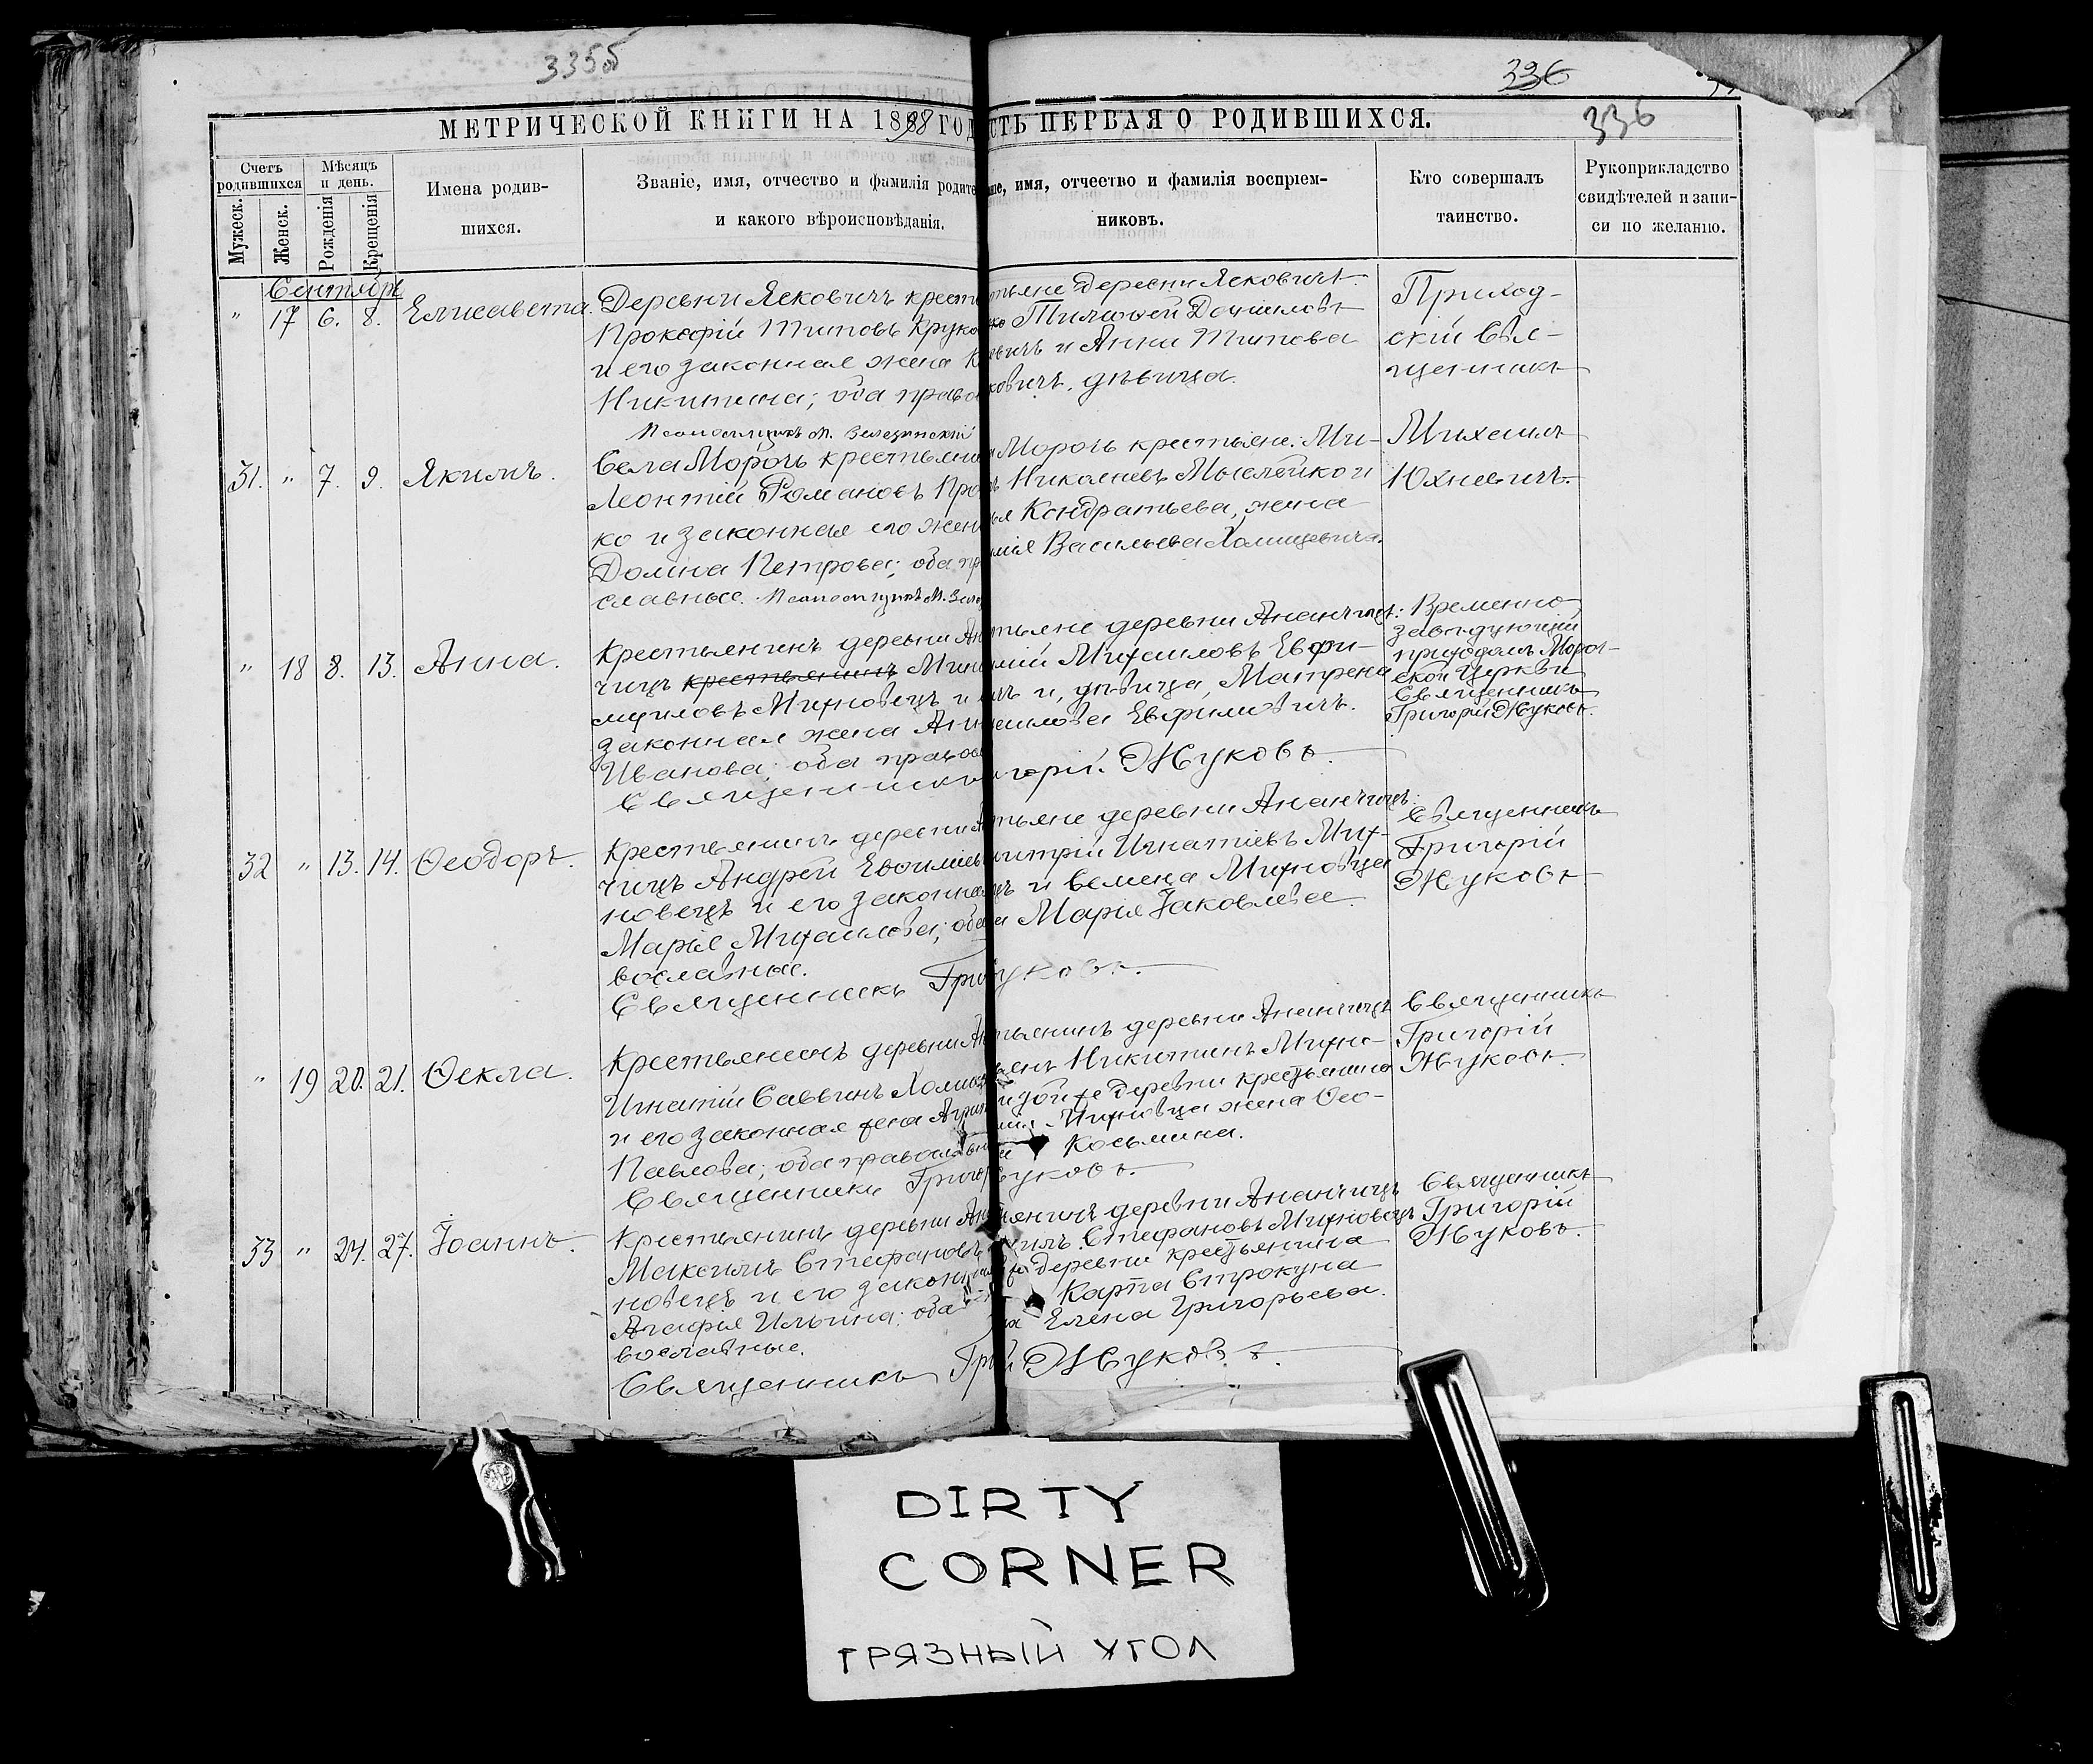 335об
336
336
МЕТРИЧЕСКОЙ КНИГИ НА 1898 ГОД
СТЬ ПЕРВАЯ О РОДИВШИХСЯ.
Счетъ родившихся
Мужеск.
Женск.
Мѣсяцъ и день.
Рожденія
Крещенія
Имена родив-
шихся.
Званіе, имя, отчество и фамилія родите
и какого вѣроисповѣданія.
ніе, имя, отчество и фамилія воспріем-
никовъ.
Кто совершалъ
таинство.
Рукоприкладство
свидѣтелей и запи-
си по желанію.
Сентябрь
" 17 6. 8. Елисавета.
Деревни Ясковичъ крест
Прокофій Титовъ Круко
и его законная жена К
Никитина; оба право
тьяне деревни Ясковичъ:
ко Тимофей Даниловъ
вичъ и Анна Титова
ковичъ, дѣвица.
Приход-
скій Свя-
щенникъ
Михаилъ
Юхневичъ.
31. " 7. 9. Якимъ.
Псаломщикъ М.
Села Морочь крестьяни
Леонтій Романовъ Про
ко и законная его жен
Домна Петрова; оба пр
славные. Псаломщикъ М.
Морочь крестьяне: Ми-
ъ Николаевъ Мыслейко и
ья Кондратьева, жена
Васильева Холицевича.
" 18 8. 13. Анна.
Крестьянинъ деревни Ан
чицъ крестьянинъ Мина
муиловъ Михновецъ и
законная жена Анн
Иванова; оба правос
Священникъ
тьяне деревни Ананчицъ:
мій Михаиловъ Евфи-
чъ и, дѣвица, Матрена
аилова Евфимовичъ.
горій Жуковъ.
Временно,
завѣдующій
приходомъ Мороч-
ской Церкви
Священникъ
Григорій Жуковъ.
32 " 13. 14. Ѳеодоръ.
Крестьянинъ деревни А
чицъ Андрей Евфиміев
новецъ и его законна
Марія Михаилова; оба
вославные.
Священникъ Гри
тьяне деревни Ананчицъ:
митрій Игнатіевъ Мих-
цъ и Семена Михновца
а Марія Іаковлева.
уковъ.
Священникъ
Григорій
Жуковъ
" 19 20. 21. Ѳекла.
Крестьянинъ деревни Ан
Игнатій Саввинъ Холиц
и его законная жена Агрип
Павлова; оба православн
Священникъ Григо
тьянинъ деревни Ананчицъ
ьянъ Никитинъ Михно-
и той же деревни крестьянина
Михновца жена Ѳео-
Косьмина.
уковъ.
Священникъ
Григорій
Жуковъ.
33 " 24. 27. Іоаннъ.
Крестьянинъ деревни Ан
Максимъ Стефановъ
новецъ и его закон
Агафія Ильина; оба
вославные.
Священникъ Гри
янинъ деревни Ананчицъ
илъ Стефановъ Михновецъ
деревни крестьянина
Карпа Строкуна
Елена Григорьева.
й Жуковъ.
Священникъ
Григорій
Жуковъ.
DIRTY
CORNER
ГРЯЗНЫЙ УГОЛ